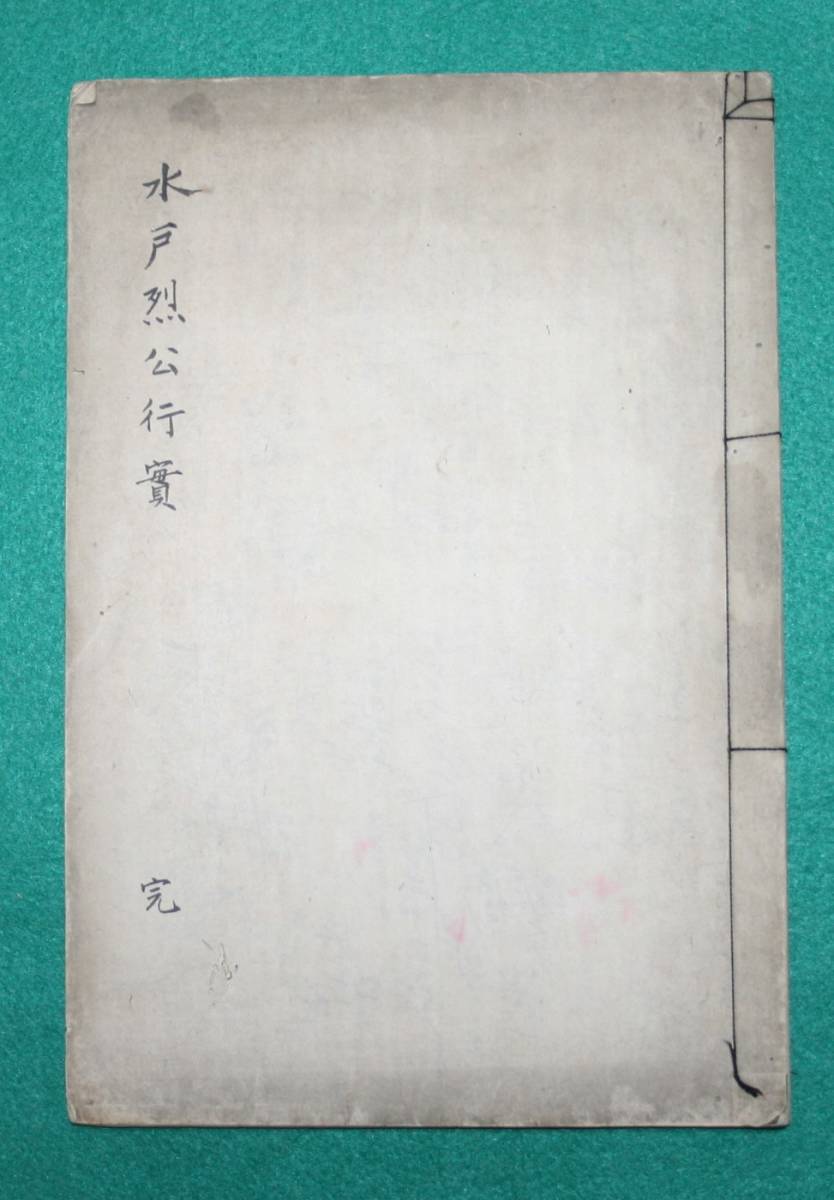 水戸烈公行實
完